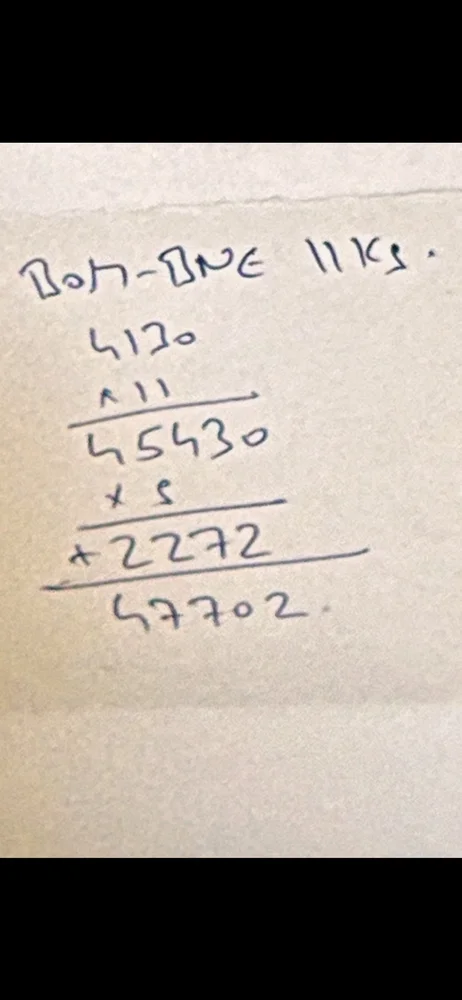 BOM-BNE 11KG.
4130
×11
45430
× 5
+2272
47702.